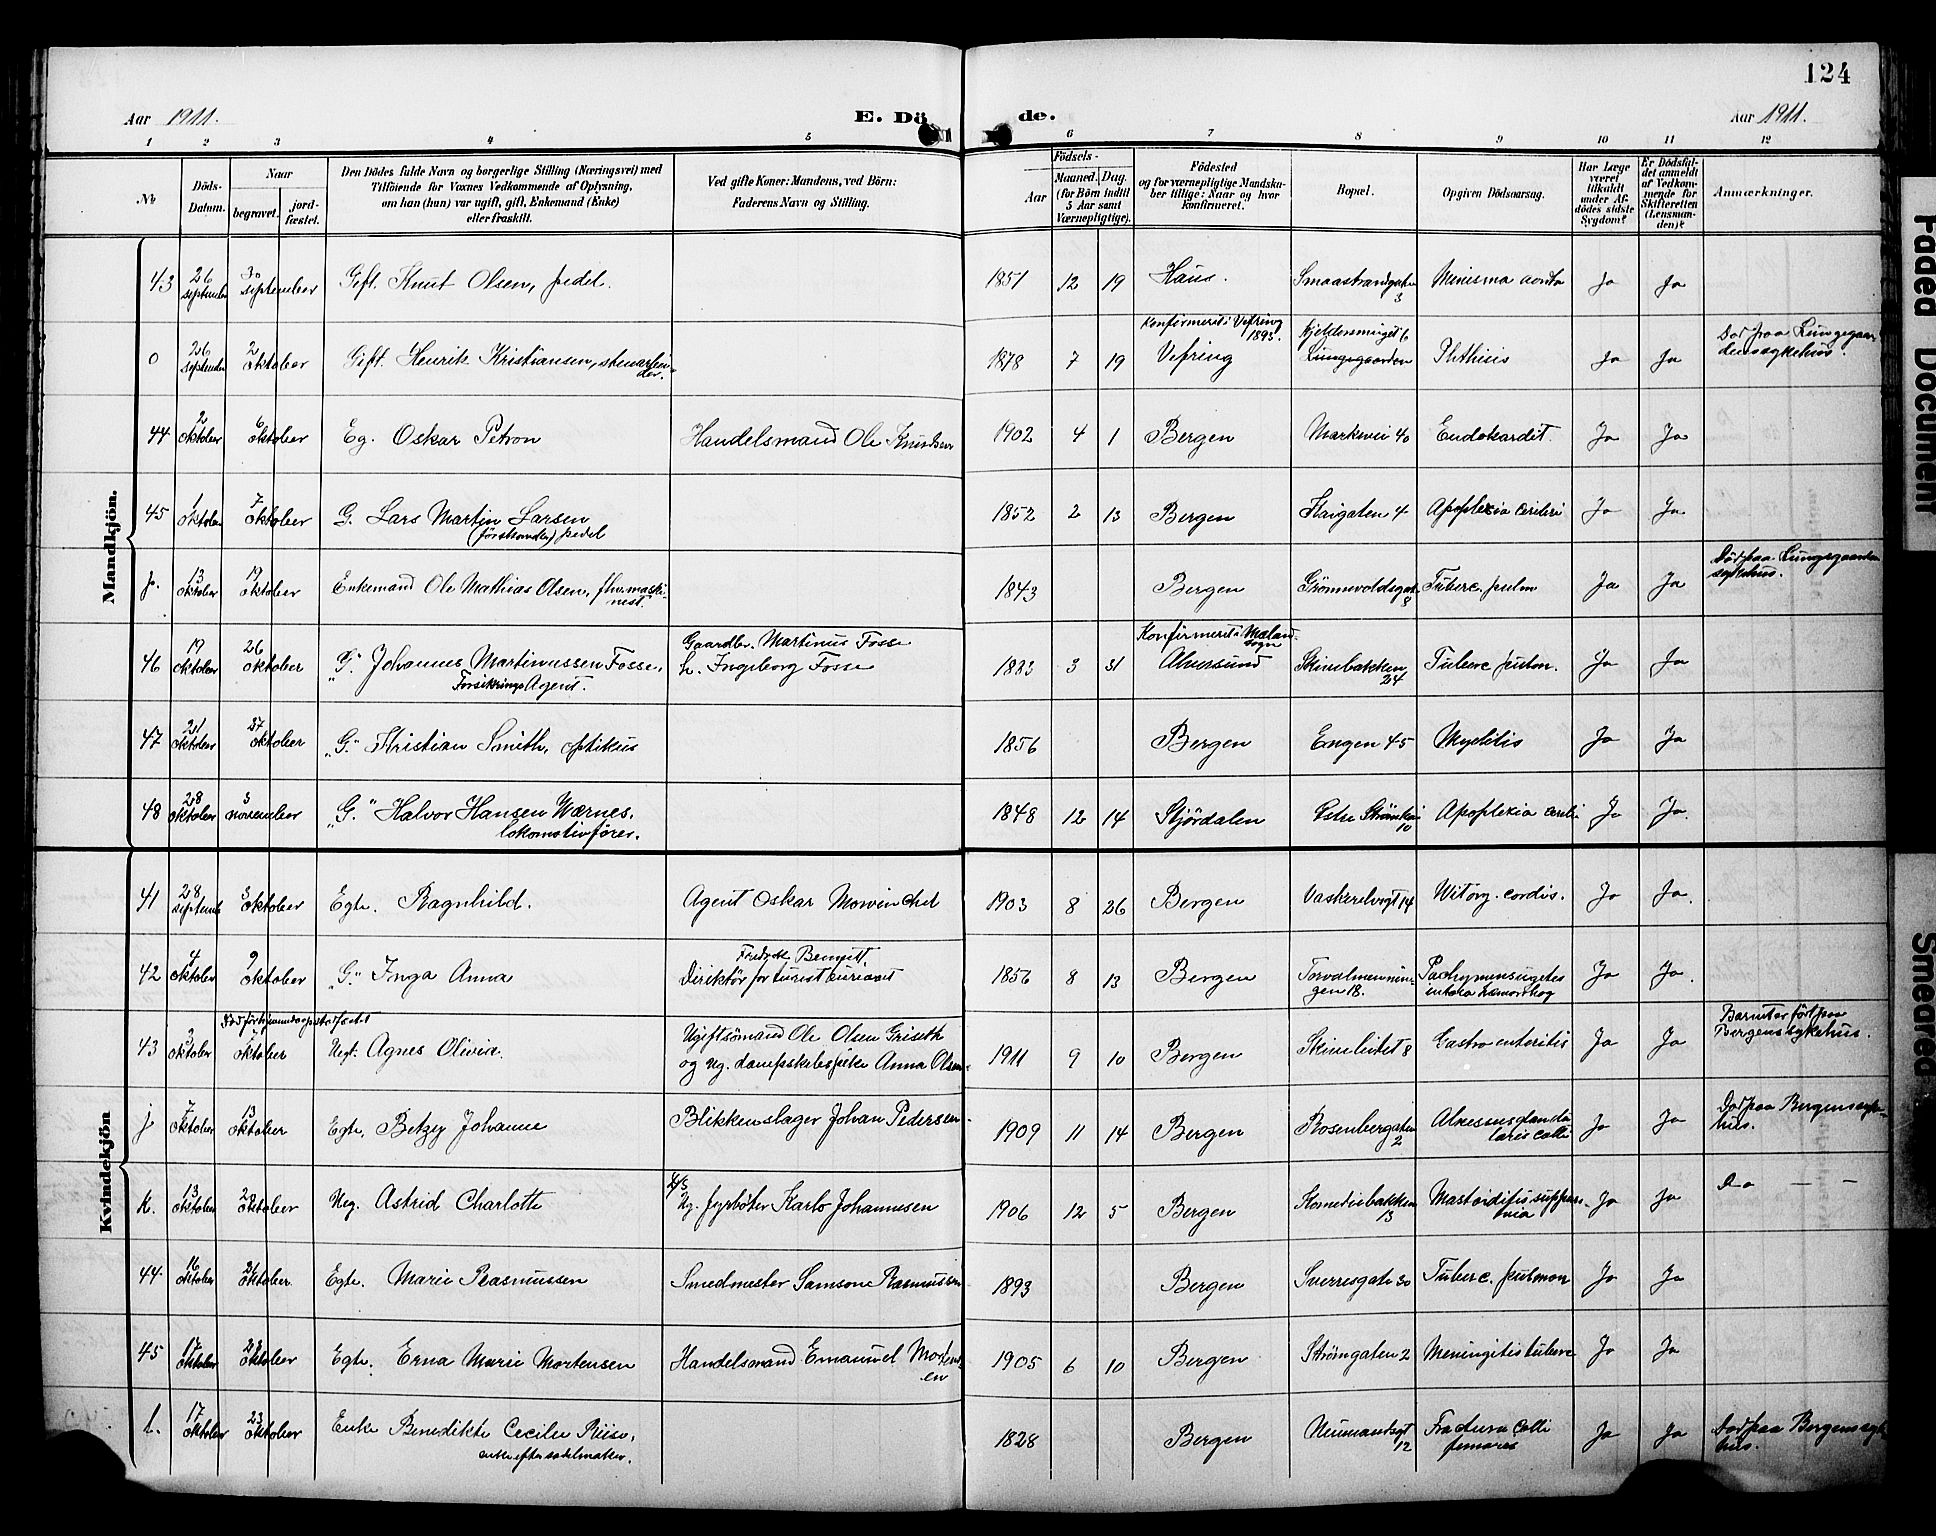 124
Aar 1911.
E. Dö de.
Aar 1911.
1 2 3 4 5 6 7 8 9 10 11 12
No
Döds-Datum.
Naar
begravet.
jordfæstet.
Den Dödes fulde Navn og borgerlige Stilling (Næringsvei) med
Tilföiende for Voxnes Vedkommende af Oplysning,
om han (hun) var ugift, gift, Enkemand (Enke)
eller fraskilt.
Ved gifte Koner: Mandens, ved Börn:
Faderens Navn og Stilling.
Födsels-
Aar
Maaned. Dag.
(for Börn indtil
5 Aar samt
Værnepligtige).
Födested
og for værnepligtige Mandska-
ber tillige: Naar og hvor
konfirmeret.
Bopæl.
Opgiven Dödsaarsag.
Har Læge
været
tilkaldt
under Af-
dödes sidste
Sygdom?
Er Dödsfal-
det anmeldt
af Vedkom-
mende for
Skifteretten
(Lensman-
den)?
Anmærkninger.
Mandkjön.
43 26 september 30 september Gift. Knut Olsen, pedel. 1851 12 19 Haus. Smaastrandgaten 3 Ja Ja
0 26 september 2 oktober Gift. Henrik Kristiansen, stenarbeider. 1878 7 19 Konfirmert i Vefring 1893. Vefring Lungegaarden Phthisis Ja Ja Död paa Lungegaardens sykehus.
44 2 oktober 6 oktober Eg. Oskar Petron Handelsmand Ole Knudsen 1902 4 1 Bergen Markevei 40 Endokardit. Ja Ja
45 1 oktober 7 oktober G. Lars Martin Larsen pedel 1852 2 13 Bergen Kaigaten 4 Apoplexia cerebri Ja Ja
j. 13 oktober 19 oktober Enkemand Ole Mathias Olsen, 1843 Bergen Tuberc. pulm Ja Ja Död paa Lungegaardens sykehus.
46 19 oktober 26 oktober "G." Johannes Martinussen Fosse, Forsikrings Agent. Gaardbr. Martinus Fosse h. Ingeborg Fosse 1883 3 31 Konfirmert i Mæland sogn Alversund Skivebakken 24 Tuberc. pulm. Ja Ja
47 21 oktober 27 oktober "G." Kristian Smith, optikus 1856 Bergen Engen 45 Myelitis Ja Ja
48 28 oktober 3 november "G." Halvor Hansen Wærnes, lokomotivförer. 1848 12 14 Stjördalen 10 Apoplexia cerebri Ja Ja.
Kvindekjön
41 28 septemb 3 oktober Egte. Ragnhild. Agent Oskar Mowinckel 1903 8 26 Bergen Vaskerelvgt 14 Vit. org. cordis. Ja Ja.
42 4 oktober 9 oktober "G." Inga Anna Fredrik Bennett. Direktör for turistbureaut 1856 8 13 Bergen Torvalmenningen 18. Ja Ja.
43 3 oktober oktober Uegt. Agnes Olivia. Ugift sömand Ole Olsen Griseth og ug. dampskibspike Anna Olsen. 1911 9 10 Bergen 8 Gastro enteritis Ja Ja Barnet er fört paa Bergens sykehus.
j 7 oktober 13 oktober Egte. Betzy Johanne Blikkenslager Johan Pedersen 1909 11 14 Bergen Rosenbergaten 2 Ja Ja Död paa Bergens sykehus.
k. 13 oktober 20 oktober Ueg. Astrid Charlotte Ug. fyrböter Karlo Johannesen 1906 12 5 Bergen Komediebakken 13 Mastoiditis suppurativa Ja Ja Do — —
44 16 oktober 21 oktober. Egte. Marie Rasmussen Smedmester Samson Rasmussen 1893 Bergen Sverresgate 30 Tuberc. pulmon Ja Ja
45 17 oktober 23 oktober Egte. Erna Marie Mortensen Handelsmand Emanuel Mortensen 1905 6 10 Bergen Strömgaten 2 Meningitis tuberc Ja Ja
l. 17 oktober 23 oktober Enke Benedikte Cecilie Riise, enke efter sadelmaker. 1828 Bergen Neumandsgt 12 Fractura colli femoris Ja Ja Död paa Bergens sykehus.
Faded Document
Smeared